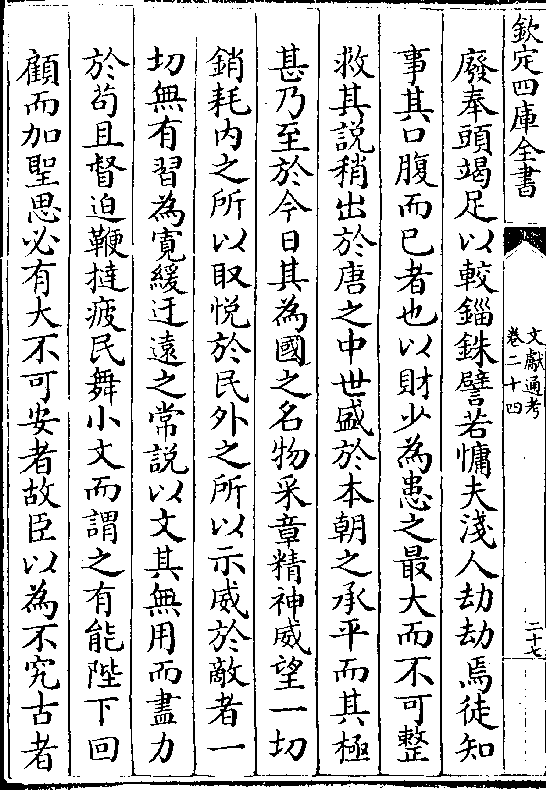 欽定四庫全書
文獻通考
卷二十四
二十七
廢奉頭竭足以較錙銖譬若慵夫淺人劫劫焉徒知
事其口腹而已者也以財少為患之最大而不可整
救其説稍出於唐之中世盛於本朝之承平而其極
甚乃至於今日其為國之名物采章精神威望一切
銷耗内之所以取悦於民外之所以示威於敵者一
切無有習為寛緩迂遠之常説以文其無用而盡力
於茍且督迫鞭撻疲民舞小文而謂之有能陛下回
顧而加聖思必有大不可安者故臣以為不究古者